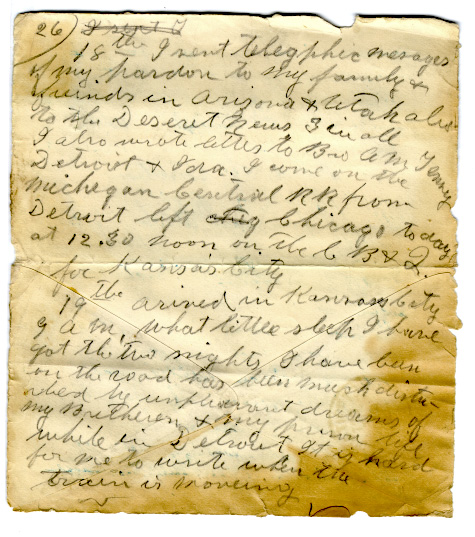 26)
18th I sent telegphic mesages
of my pardon to my family &
friends in Arizona & Utah also
to the Deseret News 3 in all
I also wrote letter to Bro A M Tenney
Detroit & Ida. I come on the
Michegan Central RR from
Detroit left Chicago today
at 12.30 noon on the C B & Q.
for Kansas City
19th arived in Kansas City
9 a m, what little sleep I have
got the two nights I have been
on the road has been much distu-
rbed by unpleasant dreams of
my Bretheren & my prison life
while in Detroit It is hard
for me to write when the
train is moveing